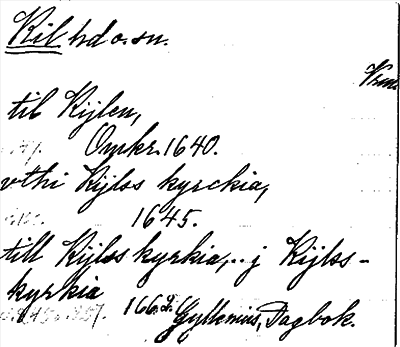 Kil hd o. sn.
til Kijlen,
Omkr. 1640.
vthi Kijlss kyrckia,
1645.
till Kijlss kyrkia,.. j Kijlss-
kyrkia
1662. Gyllenius, Dagbok.